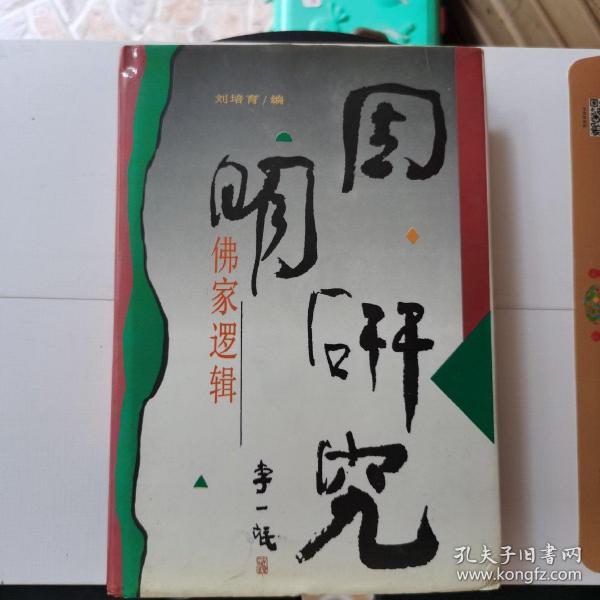 刘培育/编
因明研究
佛家逻辑
李一氓
孔夫子旧书网
www.kongfz.com